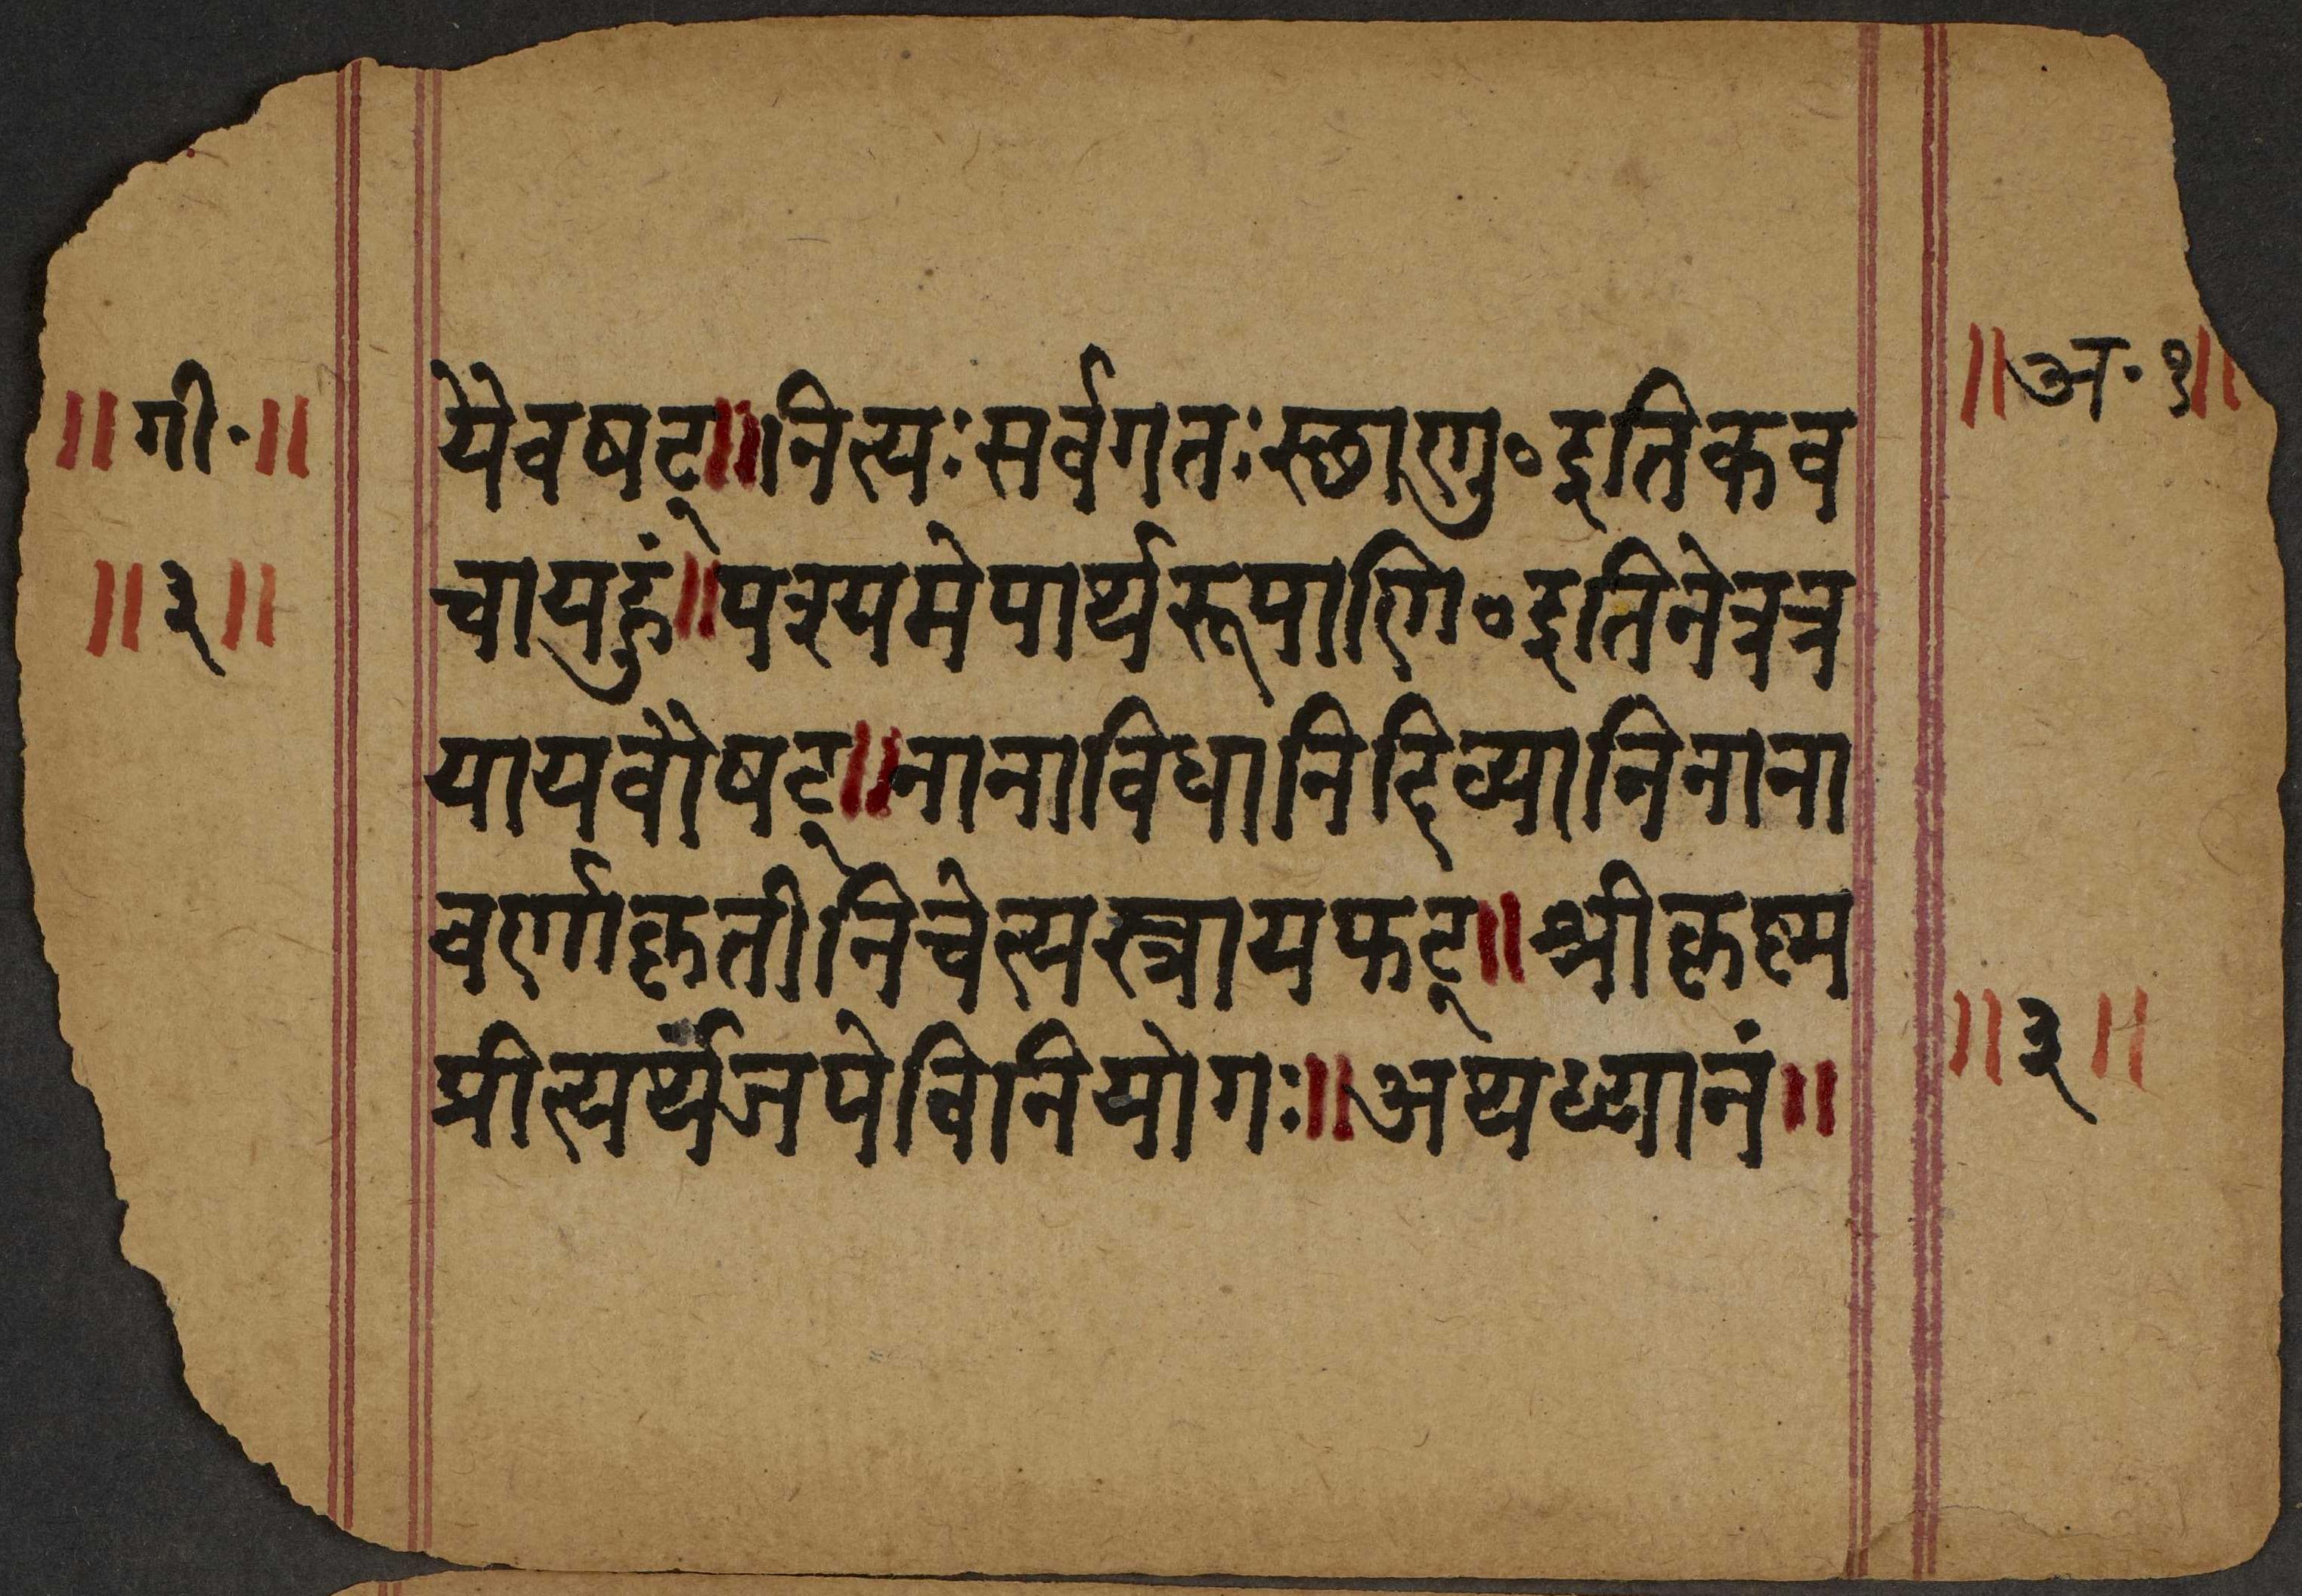 ॥गी॰॥
॥३॥
यैवषट्॥नित्यःसर्वगतःस्छाणु॰इतिकव
चायहुं॥पश्यमेपार्थरूपाणि॰इतिनेत्रत्र
यायवौषट्॥नानाविधानिदिव्यानिनाना
वर्णाकृतीनिचेत्यस्त्रायफट्॥श्रीकृष्ण
प्रीत्यर्थंजपेविनियोगः॥अथध्यानं॥
॥अ॰१॥
॥३॥